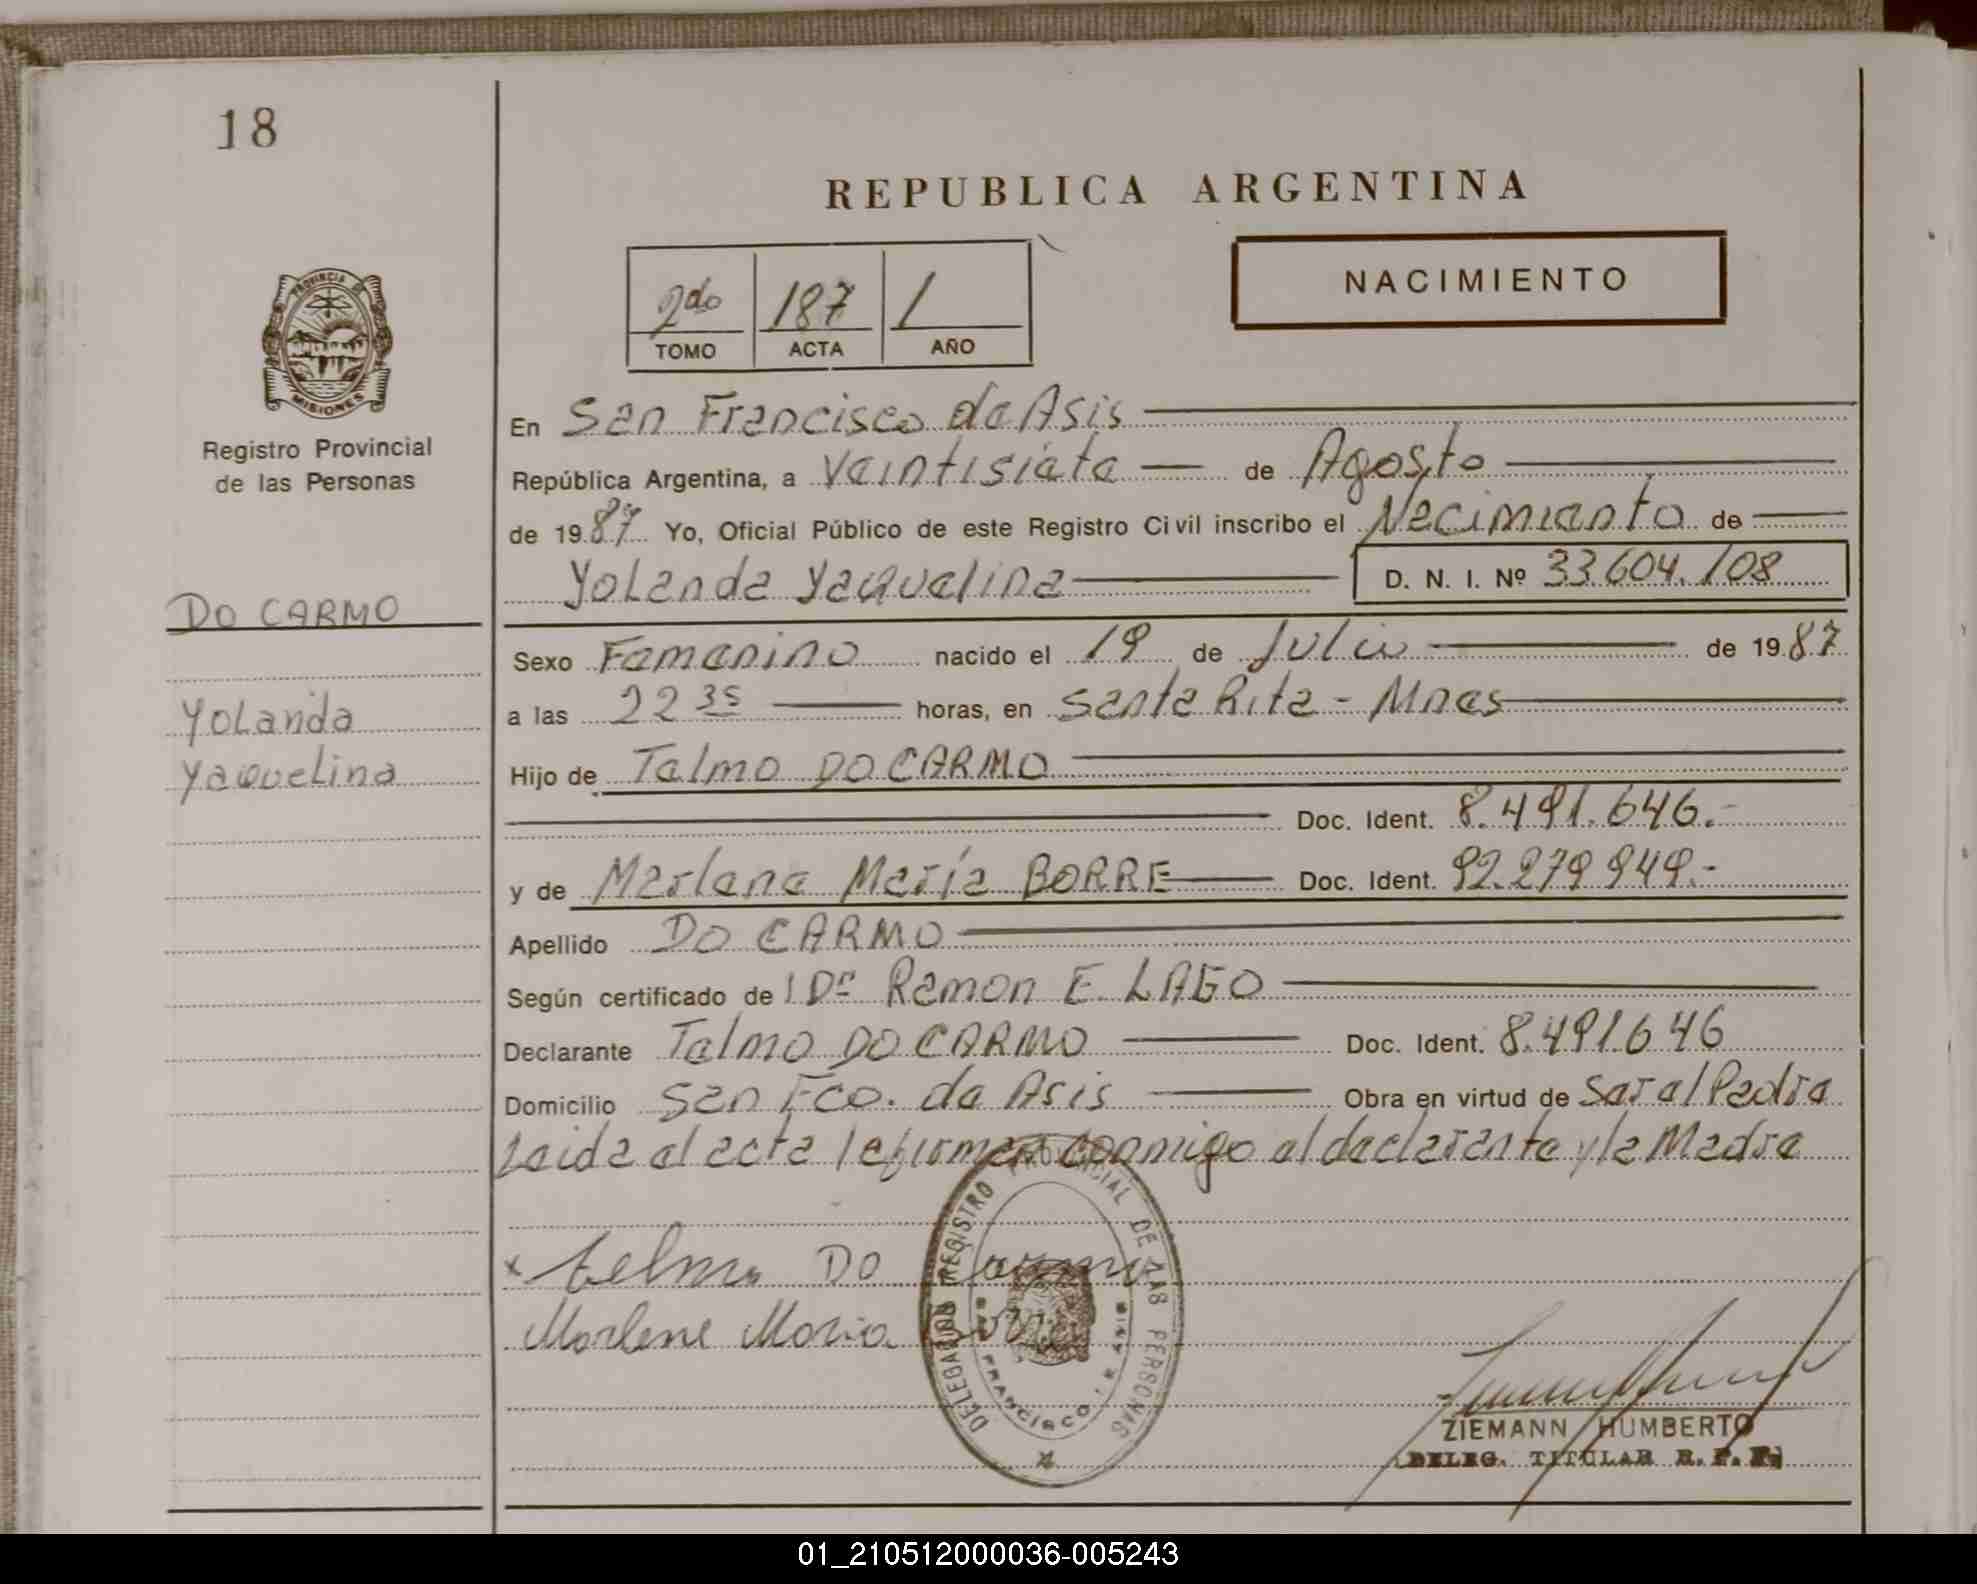 18
REPUBLICA ARGENTINA
2do 187 1
TOMO ACTA AÑO
NACIMIENTO
PROVINCIA DE
MISIONES
Registro Provincial
de las Personas
DO CARMO
Yolanda
Yaquelina
En San Francisco de Asis
República Argentina, a Veintisiete de Agosto
de 1987 Yo, Oficial Público de este Registro Civil inscribo el Necimiento de
Yolanda Yaquelina D. N. I. Nº 33.604.108
Sexo Femenino nacido el 19 de Julio de 1987
a las 22 35 horas, en Santa Rita - Mnes
Hijo de Telmo DO CARMO
Doc. Ident. 8.491.646.-
y de Marlene María BORRE Doc. Ident. 92.279.949.-
Apellido DO CARMO
Según certificado de Dr Ramon E. LAGO
Declarante Telmo DO CARMO Doc. Ident. 8.491646
Domicilio San Fco. de Asis Obra en virtud de Ser el Padre
Leida el acta la firman conmigo el declarante y la Madre
x telmo DO Carmo
Marlene Maria Borre
DELEGACION REGISTRO PROVINCIAL DE LAS PERSONAS
SAN FRANCISCO DE ASIS
ZIEMANN HUMBERTO
DELEG. TITULAR R. P. P.
01_210512000036-005243